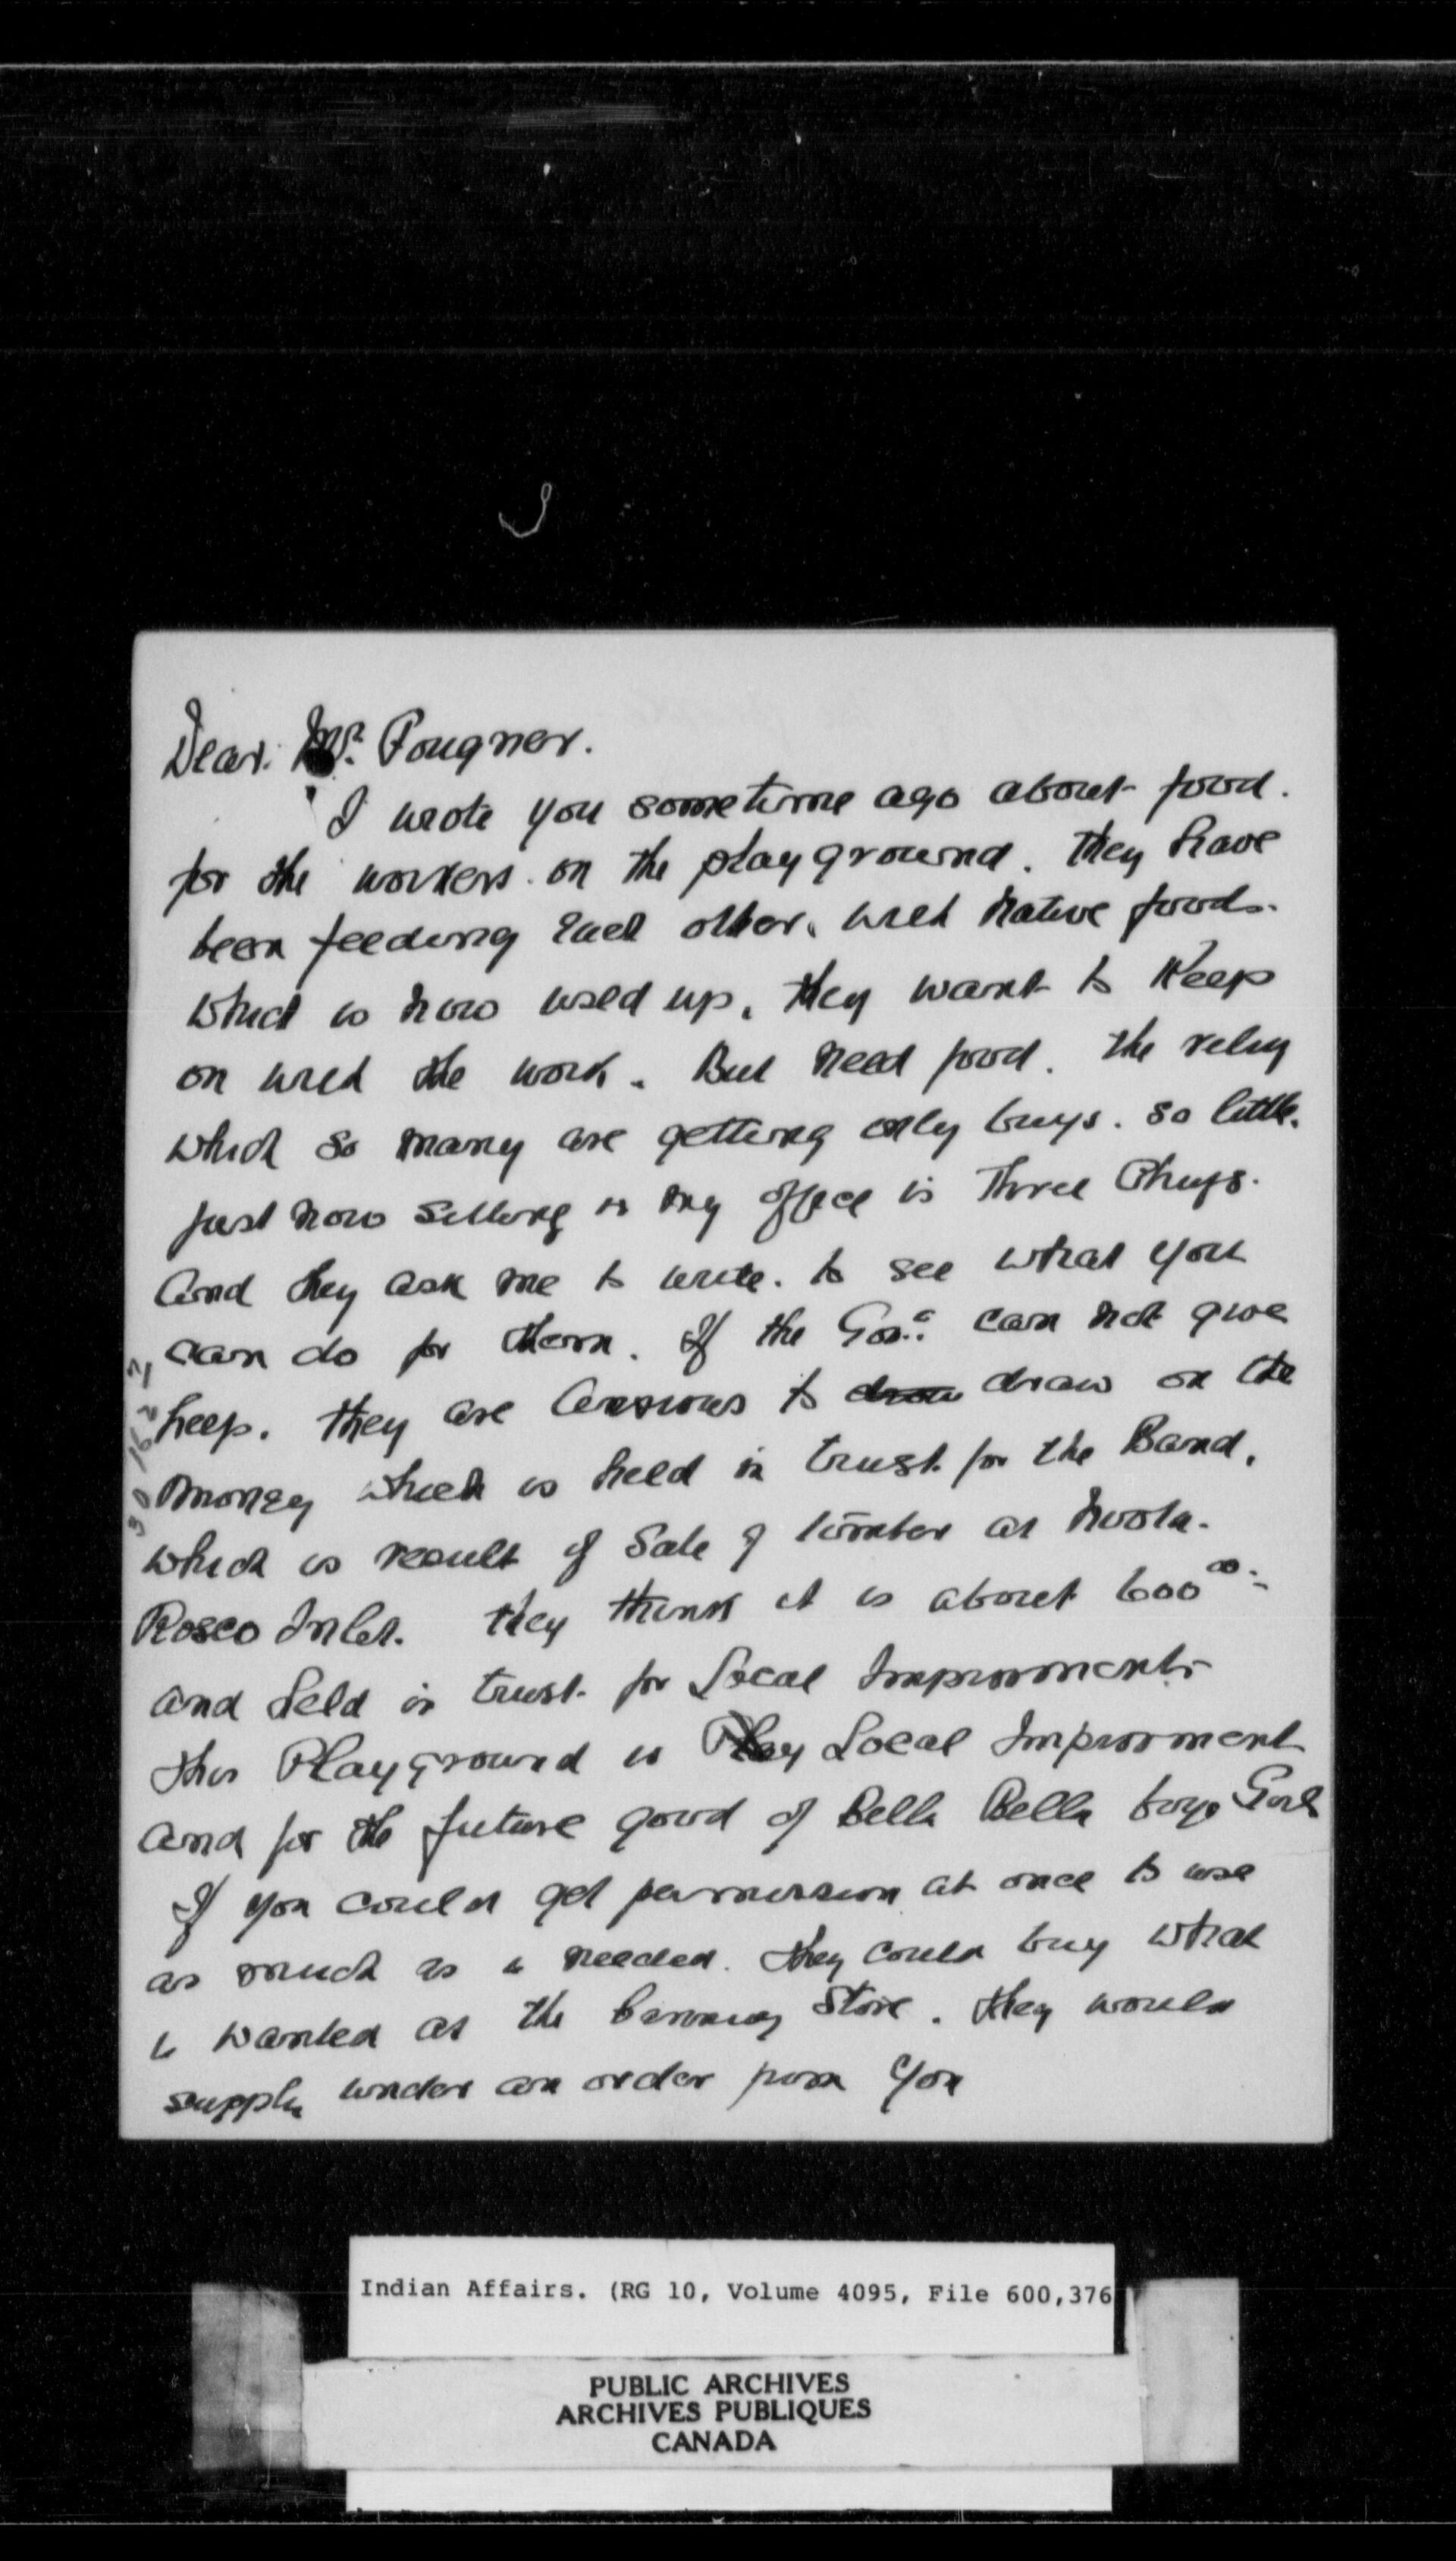 Dear. Mr. Fougner.
I wrote you sometime ago about food.
for the workers. on the playground. they have
been feeding Each other. with Native foods.
which is now used up. they want to Keep
on with the work. But need food. the relief
which so many are getting only buys. so little.
just now sitting in my office is Three Chiefs.
and they ask me to write. to see what you
can do for them. If the Gov. can not give
help. they are Anxious to draw draw on the
money which is held in trust for the Band.
which is result of Sale of timber at
Rosco Inlet. they think it is about 600 00
and held in trust for Local Improvments
this Playground is Play Local Improvment
and for the future good of Bella Bella boys Girls
If you could get permission at once to use
as much as is needed. they could buy what
is wanted at the Cannery Store. they would
supply under an order from you
Indian Affairs. (RG 10, Volume 4095, File 600,376
PUBLIC ARCHIVES
ARCHIVES PUBLIQUES
CANADA